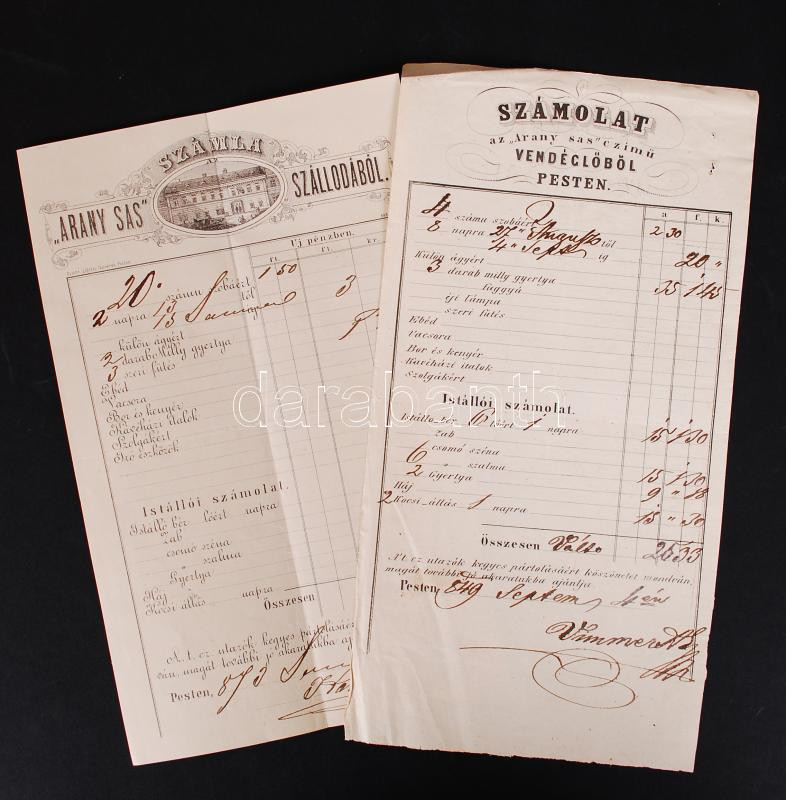 SZÁMLA
„ARANY SAS” SZÁLLODÁBÓL.
Uj pénzben.
ft. ft. kr.
20. számu szobáért 1 50
2 napra 13 tól 3
15
külön ágyért
2 darab Milly gyertya
3 szeri fütés
Ebéd
Vacsora
Bor és kenyér
Kávéházi italok
Szolgákért
Iró eszközök
Istállói számolat.
Istálló bér lóért napra
Zab
csomó széna
szalma
Gyertya
Háj
Kocsi állás napra
Összesen
A. t. cz. utazók kegyes pártolásáé
ván, magát további jó akaratukba aj
Pesten, 873
SZÁMOLAT
az „Arany sas” czimü
VENDÉGLŐBŐL
PESTEN.
a f. k.
4 számu szobáért 2 30
8 napra 27 August tól
4 Sept ig 20 "
Külön ágyért
3 darab milly gyertya 35 1 45
faggyú
éji lámpa
szeri fütés
Ebéd
Vacsora
Bor és kenyér
Kávéházi italok
Szolgákért
Istállói számolat.
Istálló bér 6 lóért 1 napra 15 1 30
Zab
6 csomó széna 15 1 30
szalma
2 Gyertya 9 " 18
Háj
2 Kocsi állás 1 napra 15 " 30
Összesen Válto 25 33
A't. cz. utazók kegyes pártolásáért köszönetet mondván,
magát további jó akaratukba ajánlja
Pesten, 849 Septem 4én
Vimmer
darabanth